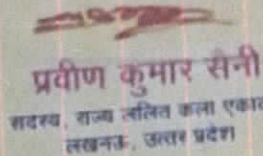 प्रवीण कुमार सैनी
सदस्य, राज्य ललित कला
लखनऊ, उत्तर प्रदेश